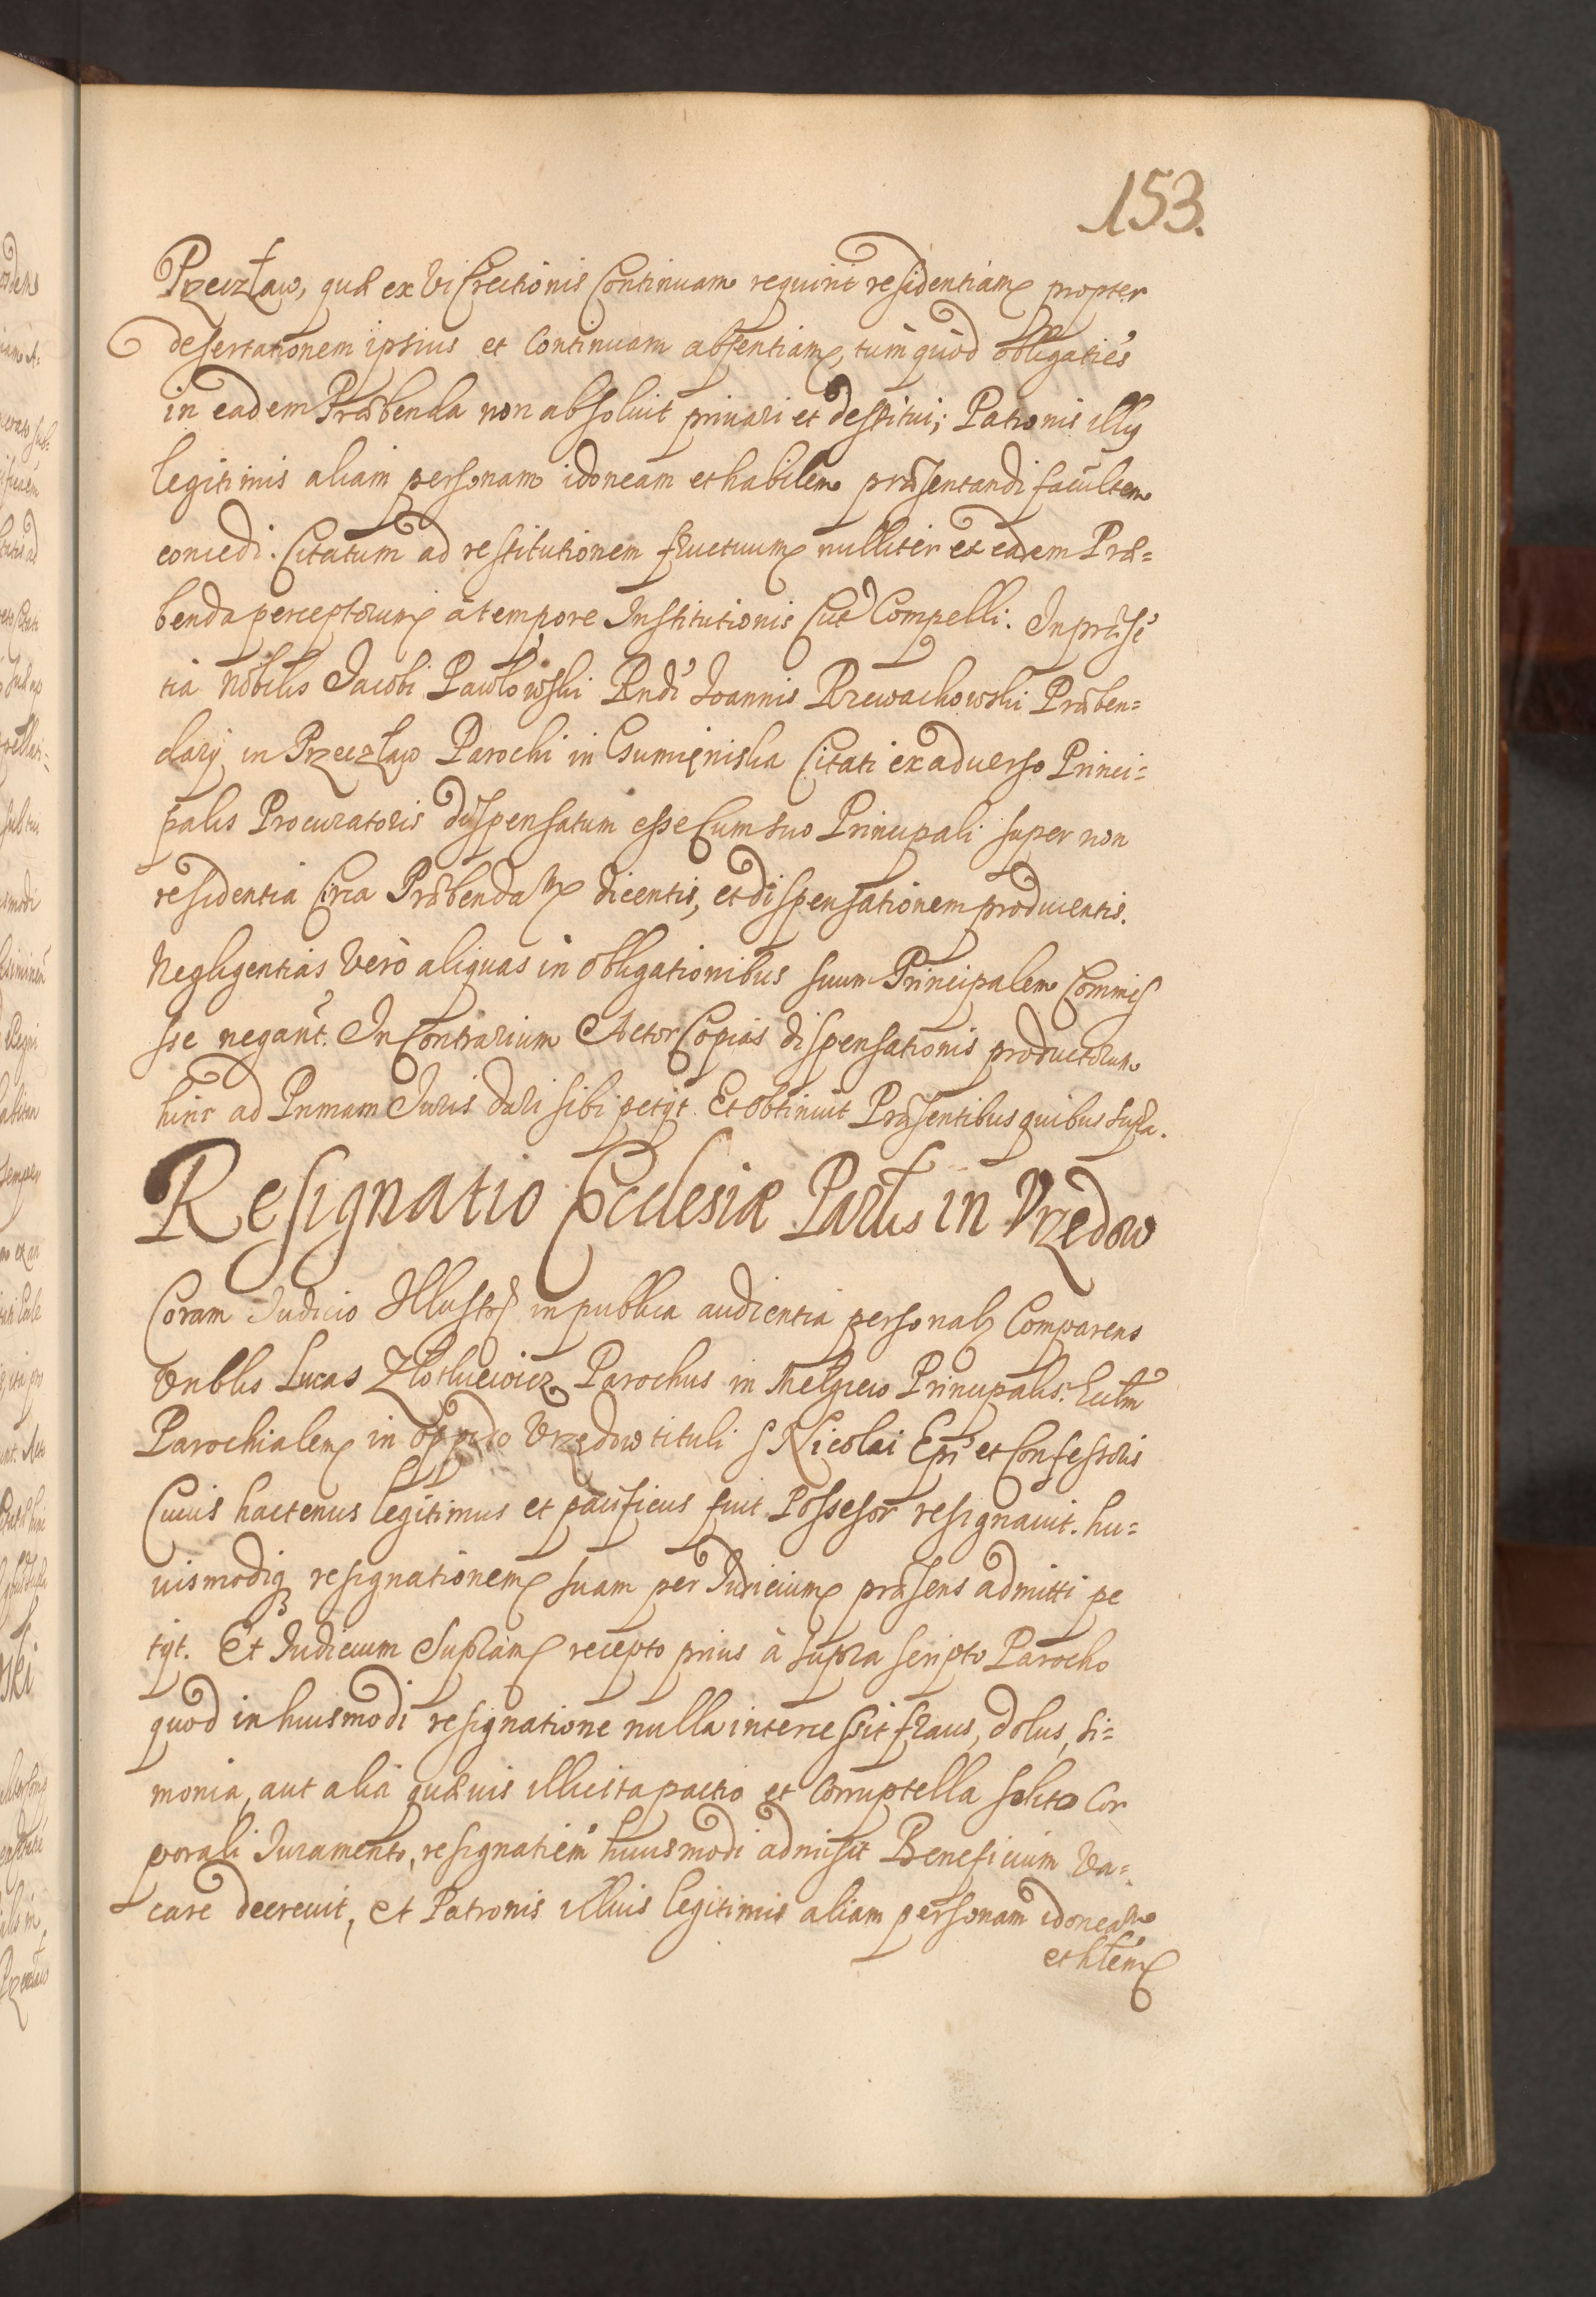 153.
Przeczław, quæ ex vi Erectionis Continuam requirit residentiam propter
desertationem ipsius et Continuam absentiam, tùm quòd obligatiēs
in eadem Præbenda non absoluit priuari et destitui; Patronis illius
legitimis aliam personam idoneam et habilem præsentandi facultem
concedi. Citatum ad restitutionem fructuum nulliter ex eadem Præ=
benda perceptorum à tempore Institutionis suæ Compelli. In præsē
tia Nobilis Jacobi Pawłowski Rndi Joannis Przewachowski Præben=
darij in Przeczław Parochi in Gumieniska Citati ex aduerso Princi=
palis Procuratoris dispensatum esse Cum suo Principali super non
residentia Circa Præbendam dicentis, et dispensationem producentis.
Negligentias verò aliquas in obligationibus suum Principalem Commis
sse negant. In Contrarium Actor Copias dispensationis productorum
hinc ad Primam Juris dari sibi petijt. Et obtinuit Præsentibus quibus supra.
Resignatio Ecclesiæ Parlis in Vrzedow
Coram Judicio Illustri in publica audientia personalr Comparens
Vnblis Lucas Złotkiewicz Parochus in Mełgiew Principalis. Ecclm
Parochialem in oppido Vrzędow tituli S Nicolai Epi et Confessoris
Cuius hactenus legitimus et pacificus fuit Possesor resignauit. hu=
iusmodiq resignationem suam per Judicium præsens admitti pe
tijt. Et Judicium Supram recepto prius à supra scripto Parocho
quod in huiusmodi resignatione nulla intercessit fraus, dolus, si=
monia, aut alia quæuis illicita pactio et Corruptella solito Cor
porali Juramento, resignatiem huiusmodi admisit Beneficium Va=
care decreuit, et Patronis illius legitimis aliam personam idoneam
et hlem